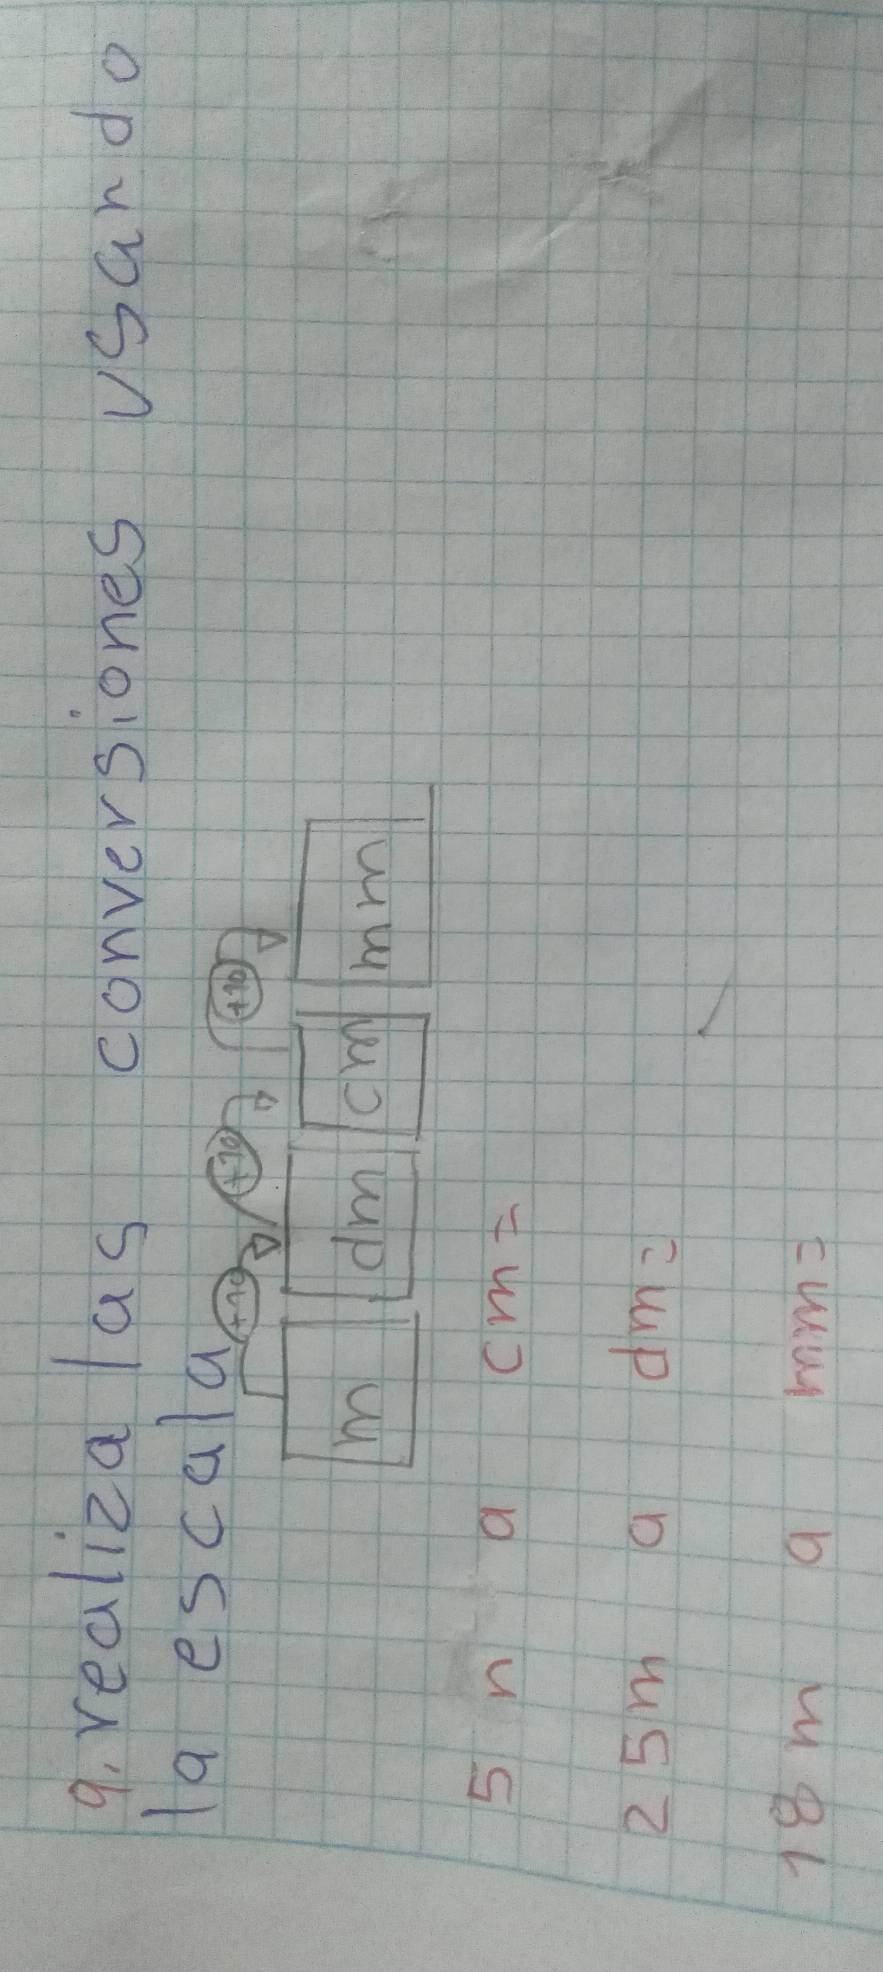 9. realiza las conversiones usando
la escala
+10 +10 +10
m dm cm mm
5 n a cm =
25m a dm =
18 m a mm =